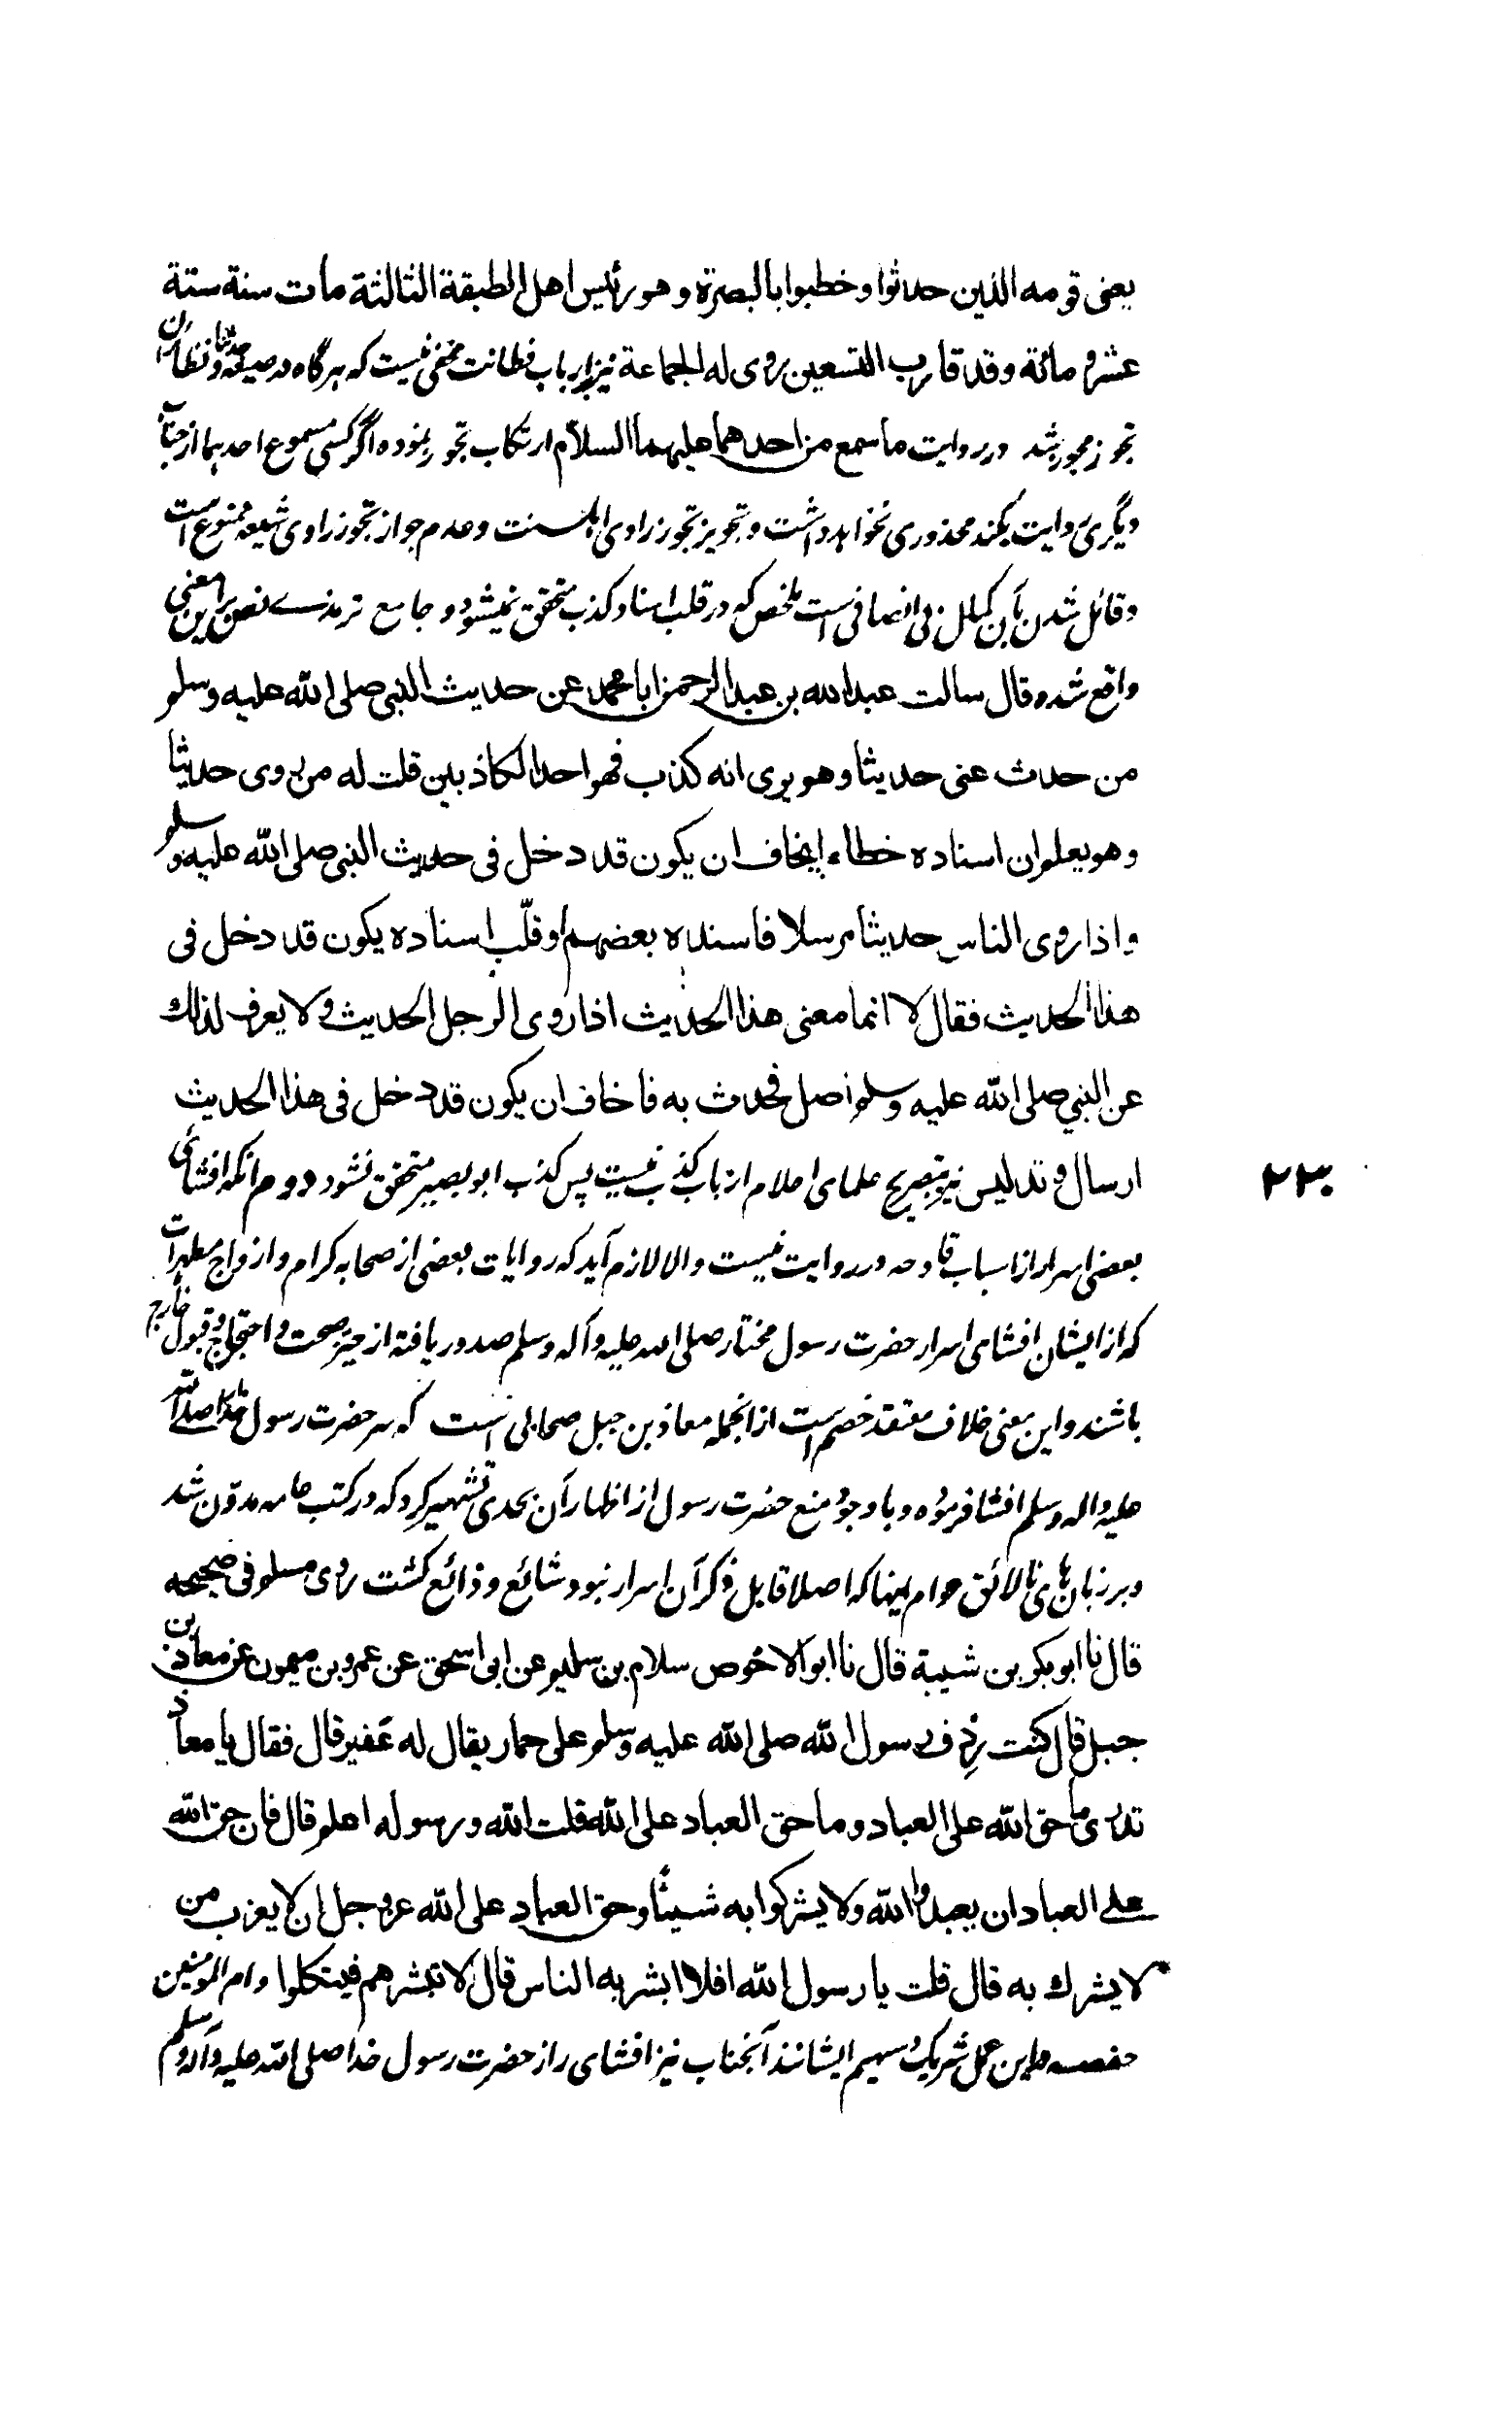 يعنی قومه الذين حدثوا وخطبوا بالبصرة وهو رئيس اهل الطبقة الثالثة مات سنة ستة
عشر و مائة وقد قارب التسعين روی له الجماعة نيز بر ارباب فطانت مخفی نيست که هرگاه در صيغه حدثنا و نظائر آن
تجوز مجوز شد در روايت ما سمع من احدهما عليهما السلام ارتکاب تجوز نموده اگر کسی مسموع احدهما از جناب
ديگری روايت بکند محذوری نخواهد داشت و تجويز تجوز راوی اهلسنت و عدم جواز تجوز راوی شيعه ممنوع است
و قائل شدن بآن کمال بی انصافی است ملخص که در قلب اسناد کذب متحقق نميشود و جامع ترمذی نص برين معنی
واقع شده وقال سالت عبدالله بن عبدالرحمن ابا محمد عن حديث النبی صلی الله عليه وسلم
من حدث عنی حديثا وهو يری انه کذب فهو احد الکاذبين قلت له من روی حديثا
وهو يعلم ان اسناده خطاء ايخاف ان يکون قد دخل فی حديث النبی صلی الله عليه وسلم
واذا روی الناس حديثا مرسلا فاسنده بعضهم او قلّب اسناده يکون قد دخل فی
هذا الحديث فقال لا انما معنی هذا الحديث اذا روی الرجل الحديث ولا يعرف لذلك
عن النبی صلی الله عليه وسلم اصل فحدث به فاخاف ان يکون قد دخل فی هذا الحديث
ارسال و تدليس نيز بتصريح علمای اعلام از باب کذب نيست پس کذب ابو بصير متحقق نشود دوم آنکه افشای
۲۲۳۰
بعضی اسرار از اسباب قادحه در روايت نيست والا لازم آيد که روايات بعضی از صحابه کرام و ازواج مطهرات
که از ايشان افشای اسرار حضرت رسول مختار صلی الله عليه وآله وسلم صدور يافته از حيز صحت و احتجاج و قبول خارج
باشند و اين معنی خلاف معتقد خصم است از انجمله معاذ بن جبل صحابی است که سر حضرت رسول خدا صلی الله
عليه واله وسلم افشا فرموده و با وجود منع حضرت رسول از اظهار آن بحدی تشهير کرد که در کتب عامه مدوّن شد
و بر زبان های نالائق عوام اينها که اصلا قابل ذکر آن اسرار نبود شائع و ذائع گشت روی مسلم فی صحيحه
قال نا ابو بکر بن شيبة قال نا ابو الاحوص سلام بن سليم عن ابی اسحق عن عمرو بن ميمون عن معاذ بن
جبل قال کنت رِدْف رسول الله صلی الله عليه وسلم علی حمار يقال له عفير قال فقال يا معاذ
تدری ما حق الله علی العباد وما حق العباد علی الله قلت الله ورسوله اعلم قال فان حق الله
علی العباد ان يعبدوا الله ولا يشرکوا به شيئا وحق العباد علی الله عز وجل ان لا يعزب من
لا يشرك به قال قلت يا رسول الله افلا ابشر به الناس قال لا تبشرهم فيتکلوا و ام المومنين
حفصه در اين عمل شريک و سهيم ايشانند آنجناب نيز افشای راز حضرت رسول خدا صلی الله عليه وآله وسلم